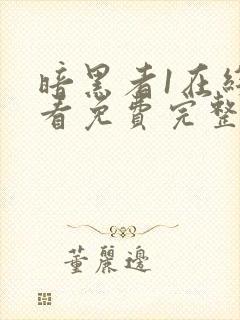 暗黑者1在线
看免费完整
董麗邊